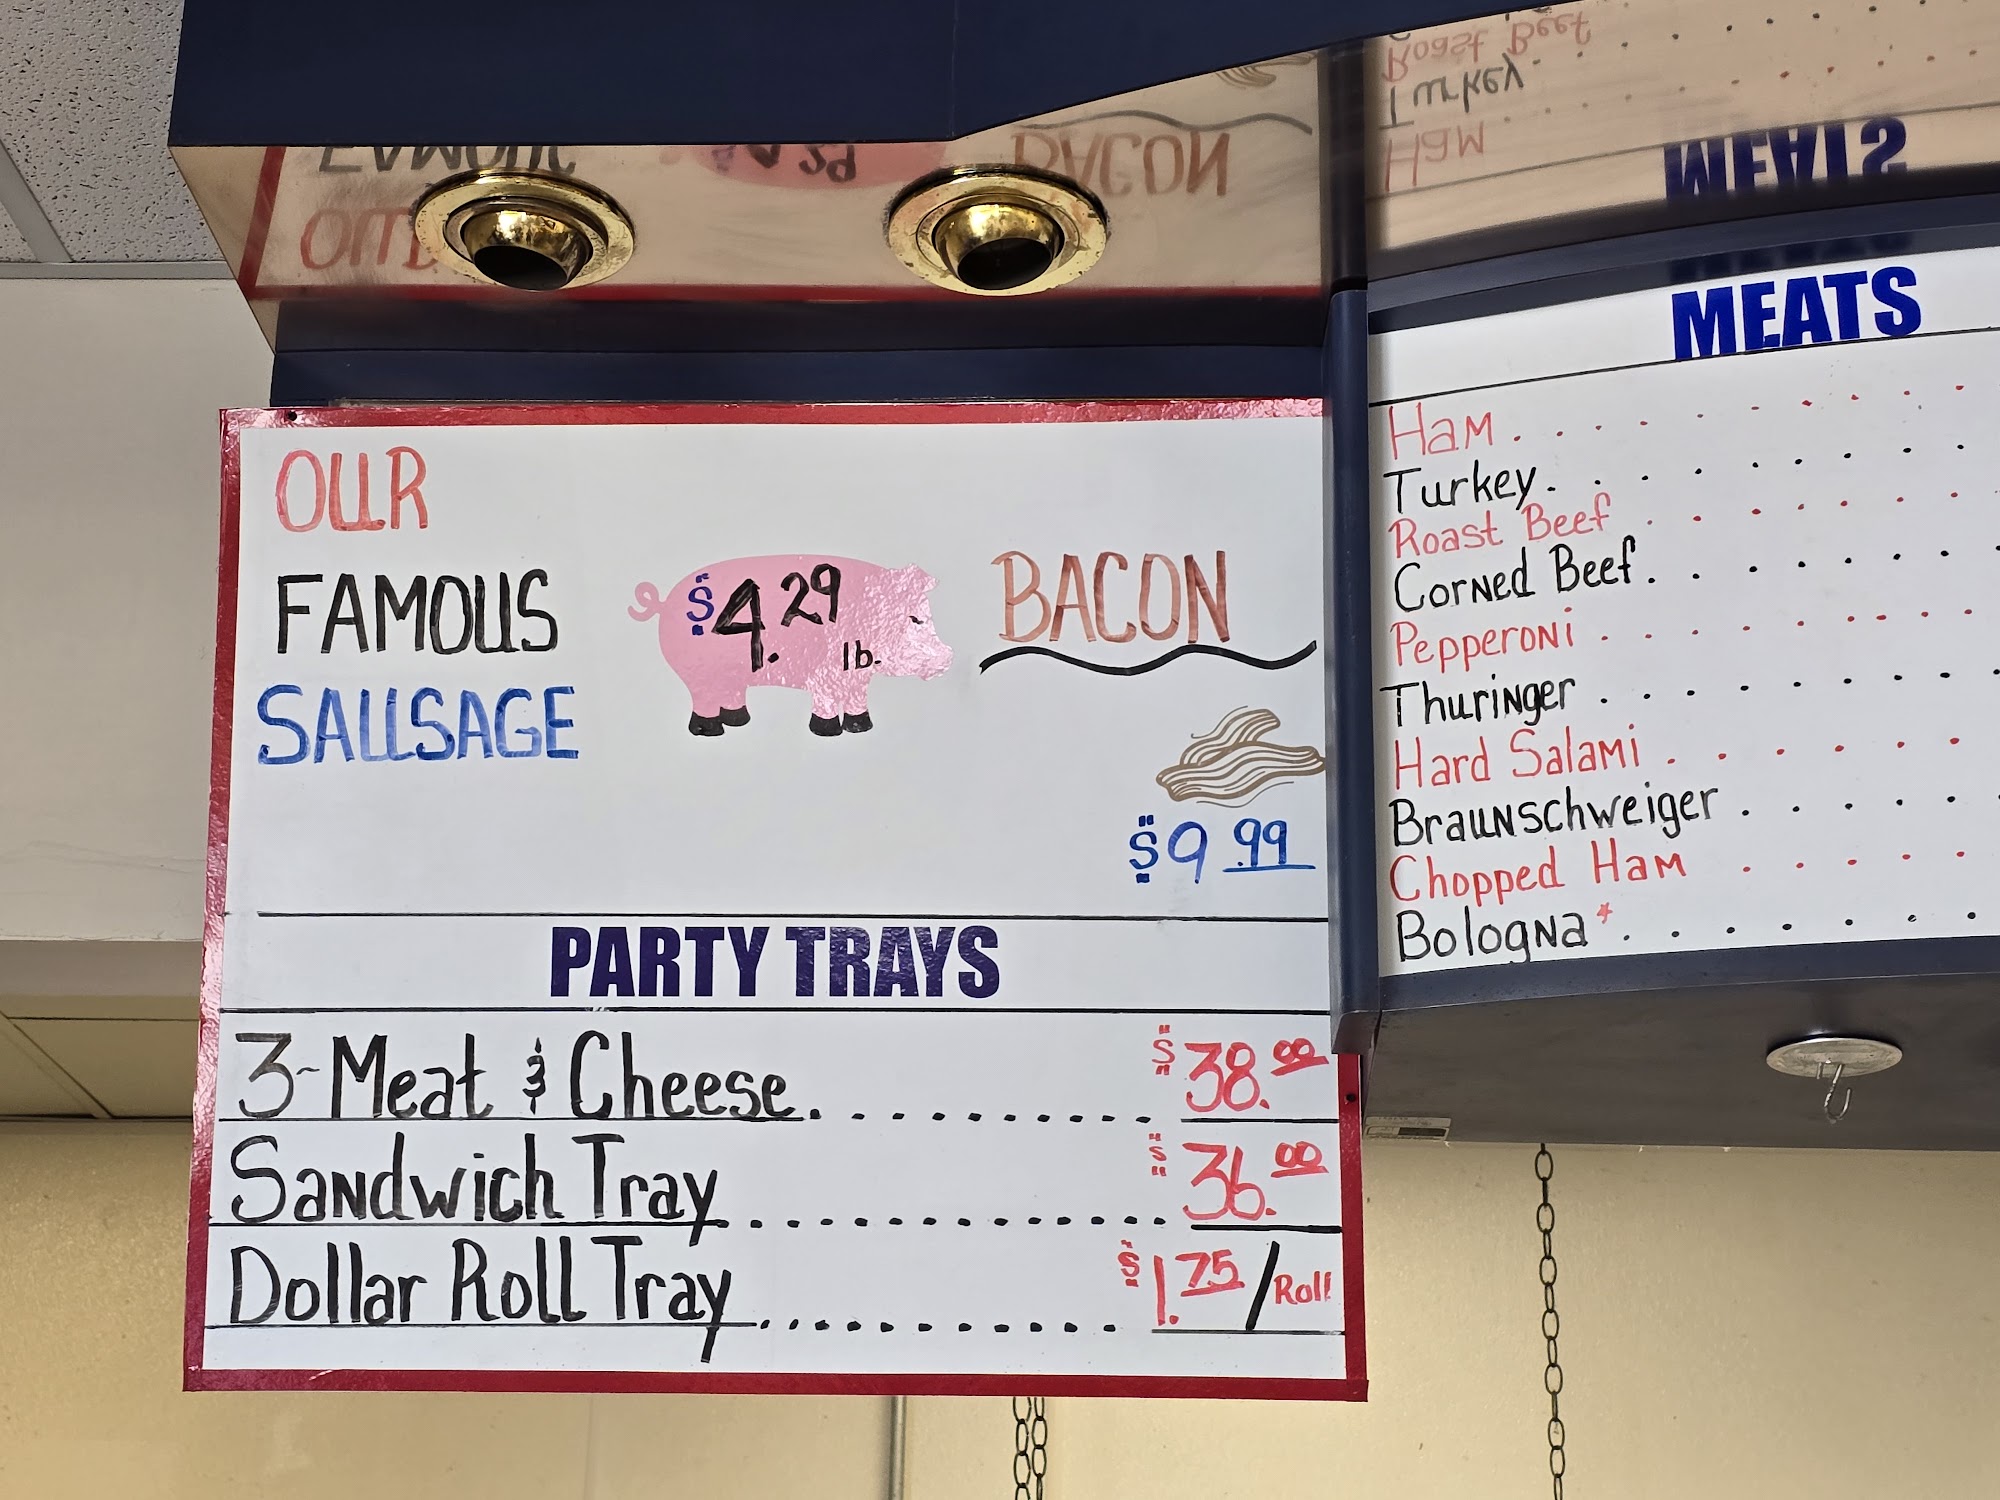 OUR
FAMOUS
SAUSAGE
$4.29
lb.
BACON
$9.99
PARTY TRAYS
3-Meat & Cheese.......... $38.00
Sandwich Tray............ $36.00
Dollar Roll Tray.......... $1.75/Roll
MEATS
Ham........
Turkey........
Roast Beef.......
Corned Beef.......
Pepperoni........
Thuringer........
Hard Salami......
Braunschweiger.....
Chopped Ham.....
Bologna*.......